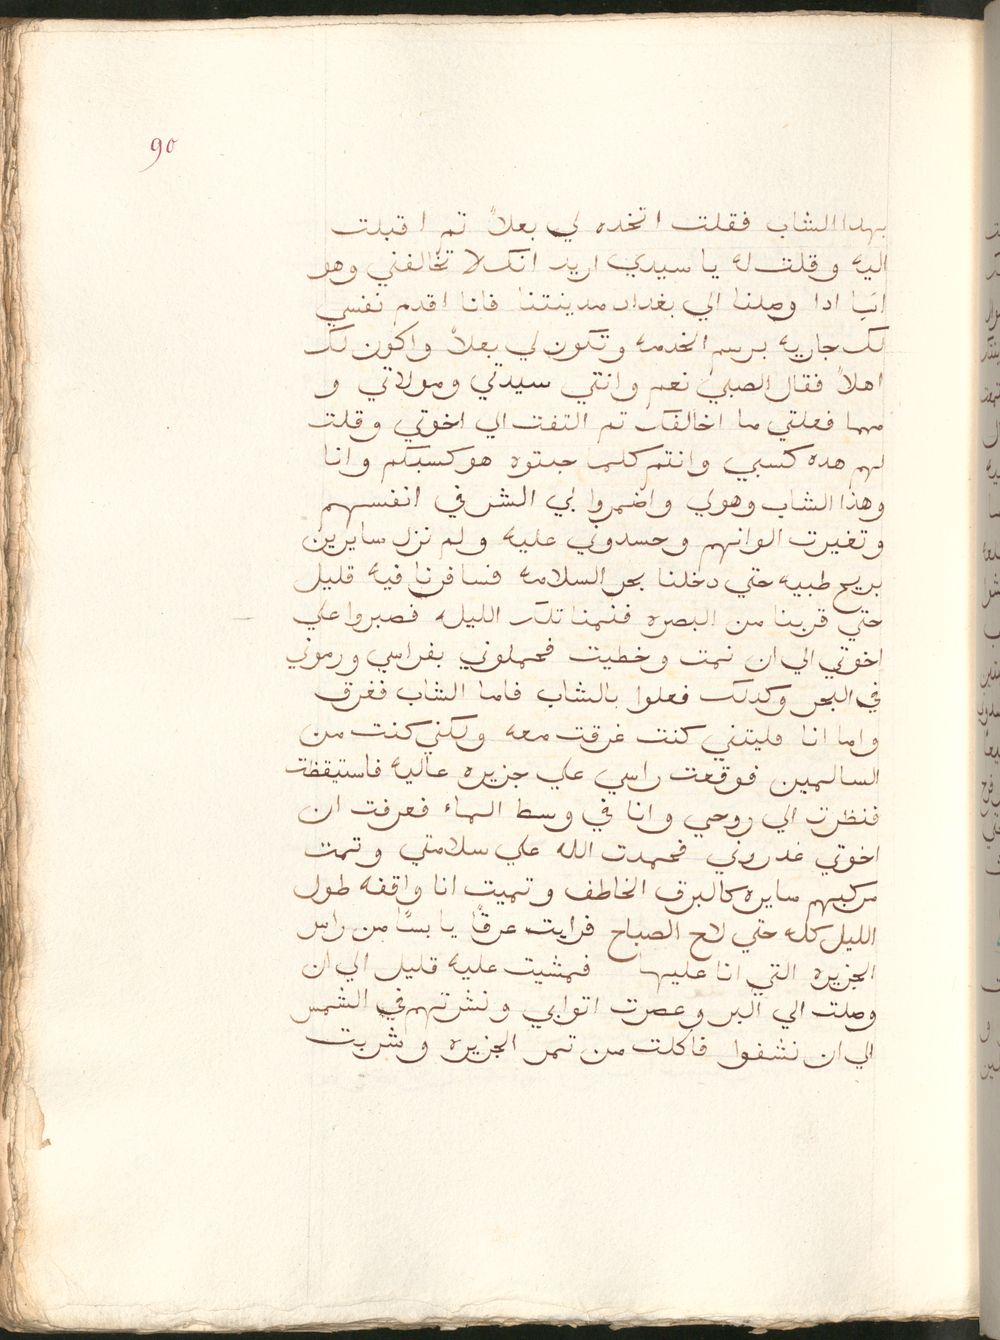 90
بهدا الشاب فقلت اتخده لي بعلاً تم اقبلت
اليه وقلت له يا سيدي اريد انك لا تخالفني وهو
ادا وصلنا الي بغداد مدينتنا فانا اقدم نفسي
لك جاريه برسم الخدمه وتكون لي بعلاً واكون لك
اهلاً فقال الصبي نعم وانتي سيدتي ومولاتي و
مهما فعلتي ما اخالفك تم التفت الي اخوتي وقلت
لهم هده كسبي وانتم كلما حدتوه هو كسبكم وانا
وهذا الشاب وهوي واضمروا لي الشر في انفسهم
وتغيرت الوانهم وحسدوني عليه ولم نزل سايرين
بريح طيبه حتي دخلنا بحر السلامه فسافرنا فيه قليل
حتي قربنا من البصره فنمنا تلك الليله فصبروا علي
اخوتي الي ان نمت وخطيت فحملوني بفراسي ورموني
في البحر وكدلك فعلوا بالشاب فاما الشاب فغرق
واما انا فليتني كنت غرقت معه ولكني كنت من
السالمين فوقعت راسي علي جزيره عاليه فاستيقظت
فنظرت الي روحي وانا في وسط الماء فعرفت ان
اخوتي غدروني فحمدت الله علي سلامتي وتمت
مركبهم سايره كالبرق الخاطف وتميت انا واقفه طول
الليل كله حتي لاح الصباح فرايت عرقًا يابسًا من راس
الجزيره التي انا عليها فمشيت عليه قليل الي ان
وصلت الي البر وعصرت اتوابي ونشرتهم في الشمس
الي ان نشفوا فاكلت من تمر الجزيره وشربت